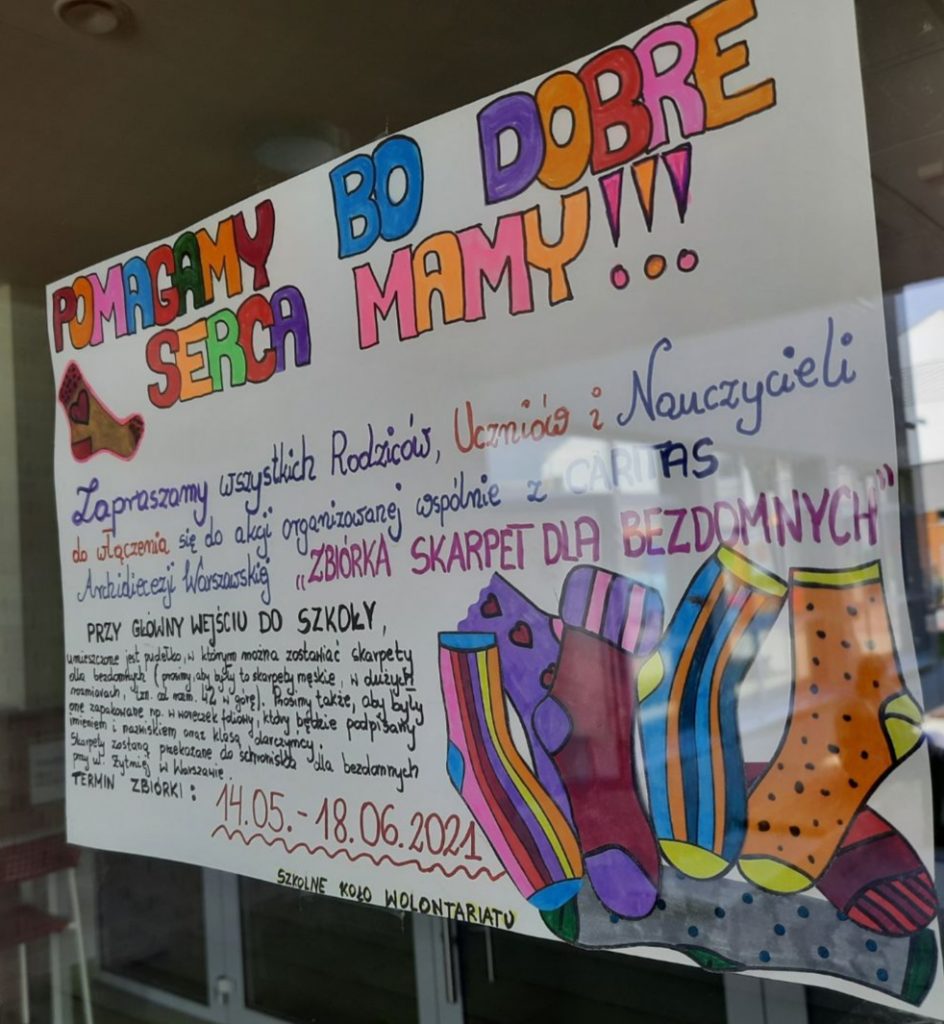 POMAGAMY BO DOBRE
SERCA MAMY!!!
Zapraszamy wszystkich Rodziców, Uczniów i Nauczycieli
do włączenia się do akcji organizowanej wspólnie z CARITAS
Archidiecezji Warszawskiej „ZBIÓRKA SKARPET DLA BEZDOMNYCH”
PRZY GŁÓWNY WEJŚCIU DO SZKOŁY,
umieszczone jest pudełko, w którym można zostawiać skarpety
dla bezdomnych (prosimy, aby były to skarpety męskie, w dużych
rozmiarach, tzn. od rozm. 42 w górę). Prosimy także, aby były
one zapakowane np. w woreczek foliowy, który będzie podpisany
imieniem i nazwiskiem oraz klasą darczyńcy.
Skarpety zostaną przekazane do schroniska dla bezdomnych
przy ul. Żytniej w Warszawie.
TERMIN ZBIÓRKI:
14.05.-18.06.2021
SZKOLNE KOŁO WOLONTARIATU